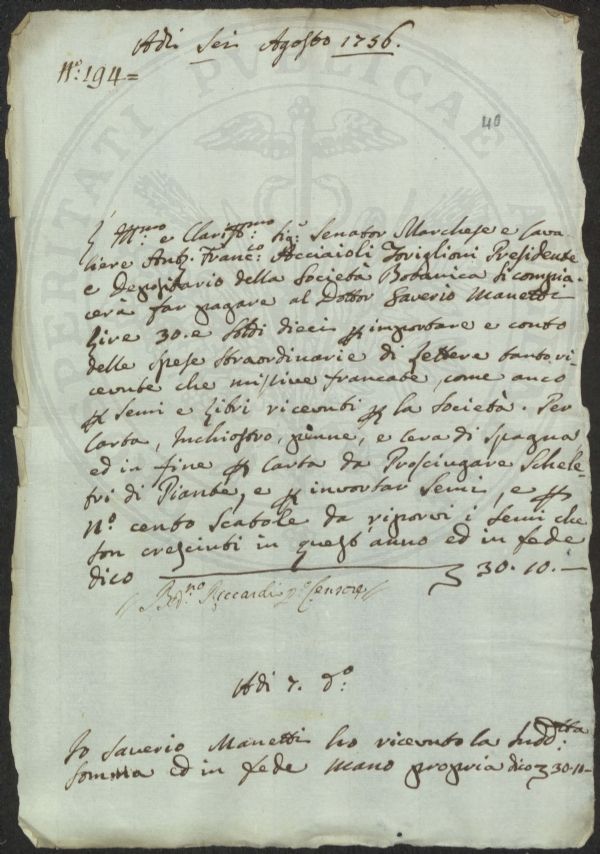 Adi Sei Agosto 1756.
N.º 194=
40
L' Ill.mo e Clariss.mo Sig.r Senator Marchese e Cava-
liere Ant. Franc.co Acciaioli Toriglioni Presidente
e Depositario della Società Botanica si compia-
cerà far pagare al Dottor Saverio Manetti
Lire 30. e Soldi dieci p importare e conto
delle Spese Straordinarie di Lettere tanto ri-
cevute che missive francate, come anco
p Semi e Libri ricevuti p la Società. Per
Carta, Inchiostro, penne, e Cera di Spagna
ed in fine p Carta da Prosciugare Schele-
tri di Piante, e p involtar Semi, e p
N.º cento Scatole da riporvi i Semi che
son cresciuti in quest'anno ed in fede
dico 30. 10. —
Riccardi p.º Censore
Adi 7. d.º
Io Saverio Manetti ho ricevuto la Sudd.etta
Somma ed in fede mano propria dico 30-10-
PUBLICAE